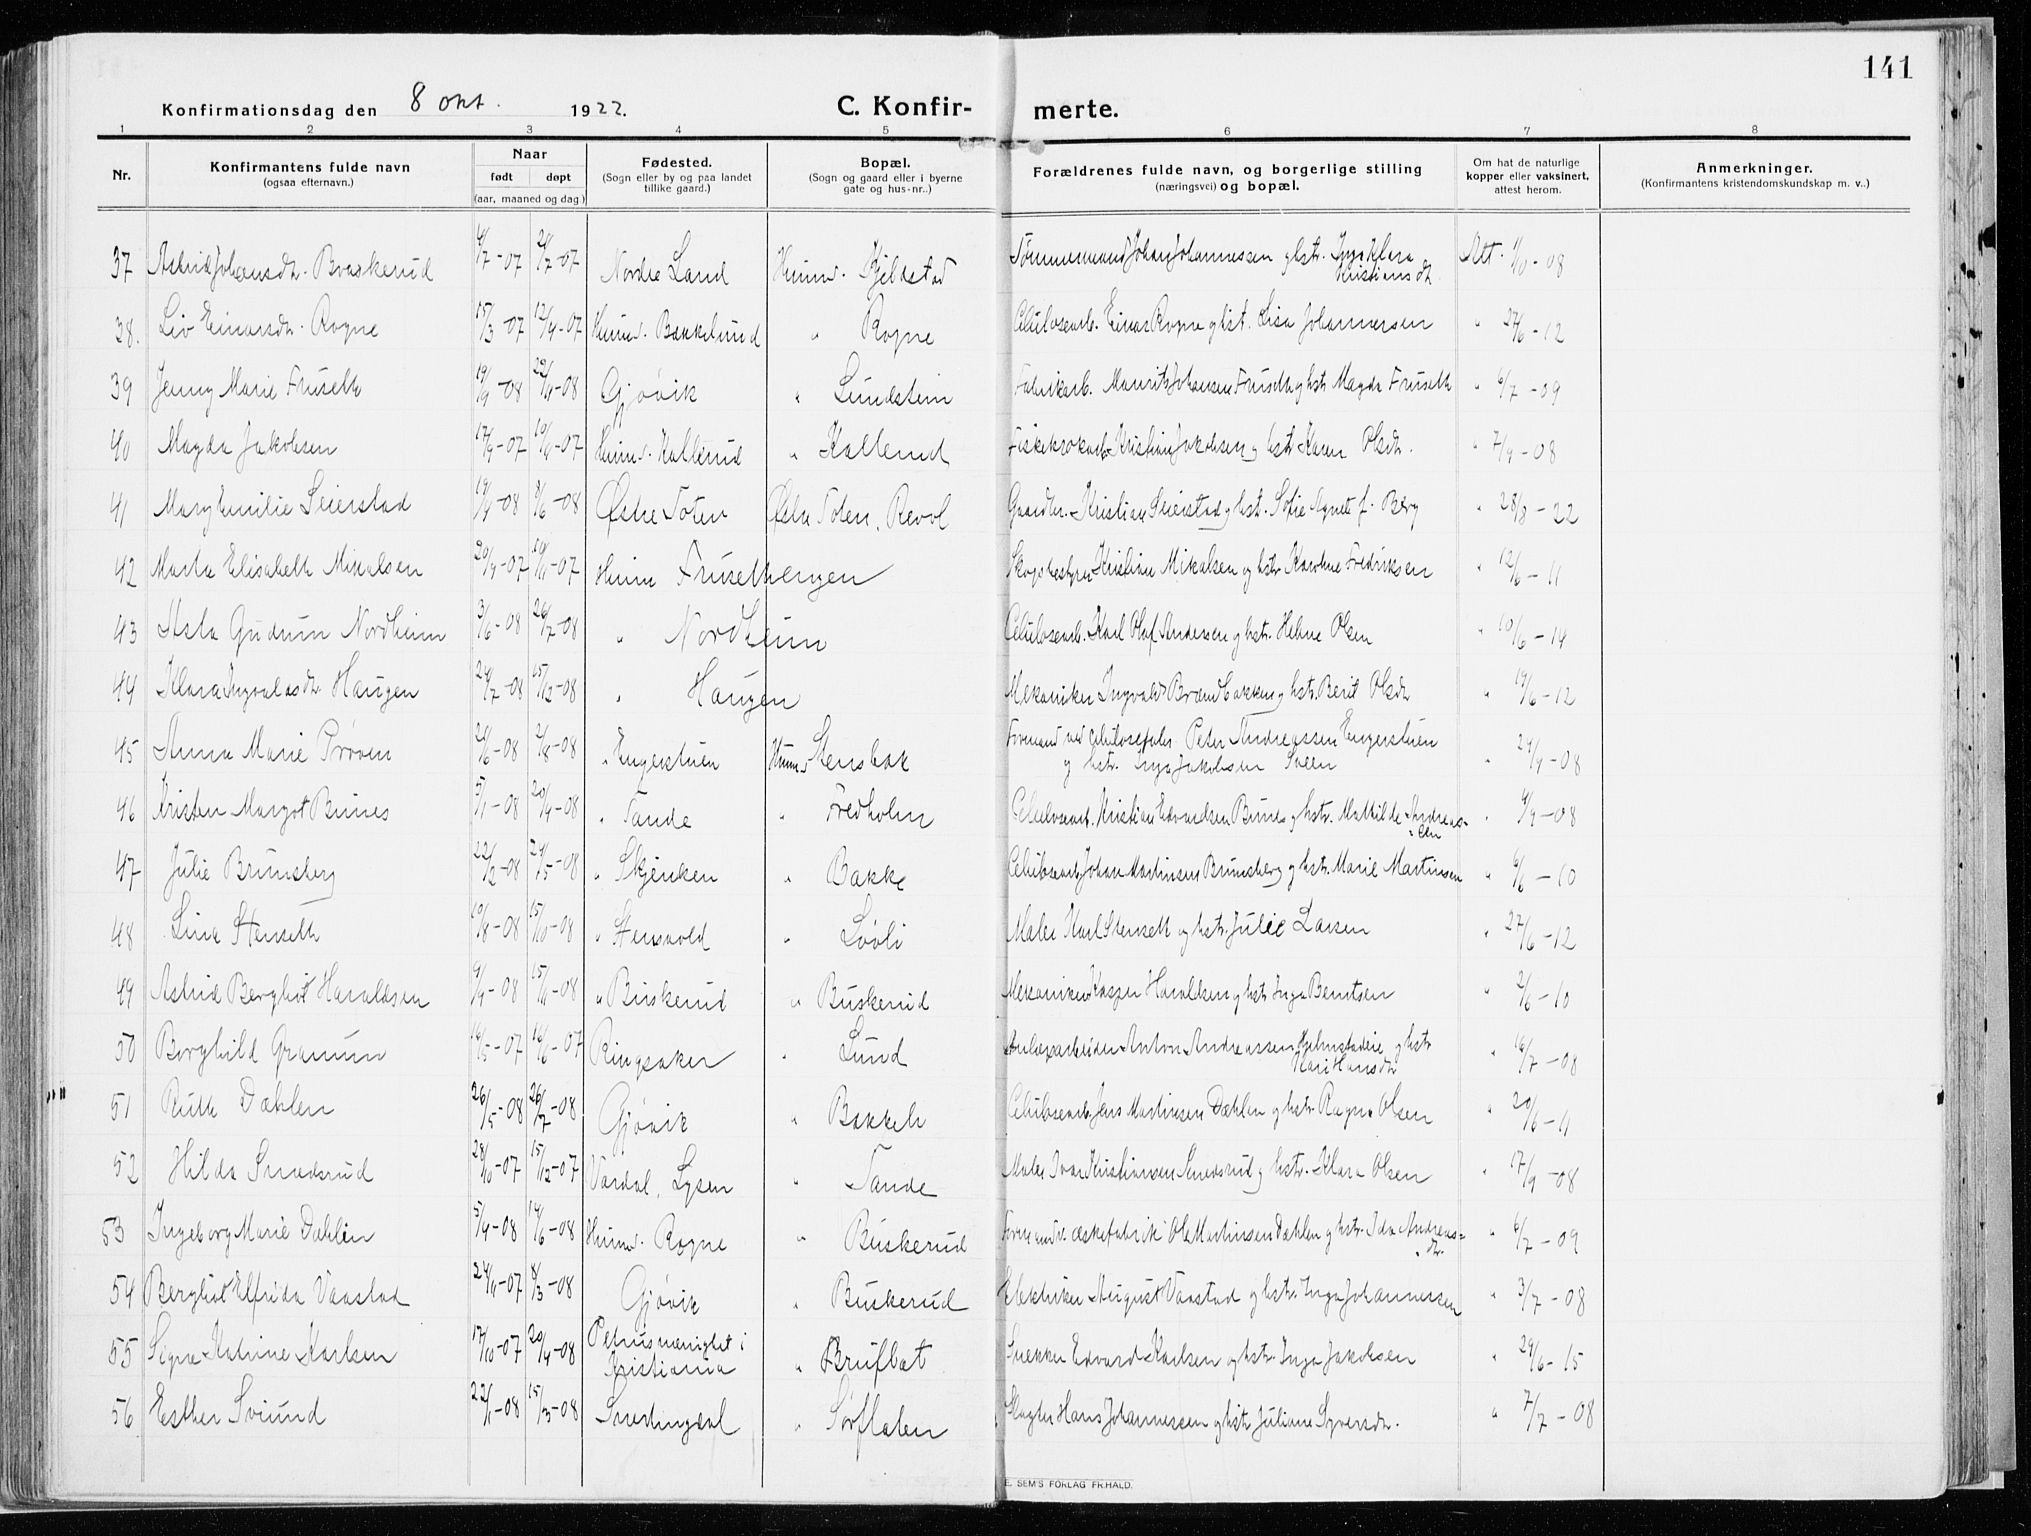 141
Konfirmationsdag den 8 okt. 1922. C. Konfir- merte.
1 2 3 4 5 6 7 8
Nr. Konfirmantens fulde navn (ogsaa efternavn.) Naar født døpt (aar, maaned og dag.) Fødested. (Sogn eller by og paa landet tillike gaard.) Bopæl. (Sogn og gaard eller i byerne gate og hus-nr..) Forældrenes fulde navn, og borgerlige stilling (næringsvei) og bopæl. Om hat de naturlige kopper eller vaksinert, attest herom. Anmerkninger. (Konfirmantens kristendomskundskap m. v..)
37 Astrid Johansdtr. Braskerud 4/7-07 21/7-07 Nordre Land Hunn. Kjeldstad Tømmermand Johan Johannessen og hstr. Inga Klara Kristiansdtr. Att. 1/10-08
38. Liv Einarsdtr. Rogne 15/3-07 12/4-07 Hunn. Bakkelund " Rogne Cellulosearb. Einar Rogne og hst. Lisa Johannessen " 27/6-12
39 Jenny Marie Fruseth 19/9-08 22/11-08 Gjøvik " Lundstein Fabrikarb. Maurits Johansen Fruseth og hstr. Magda Fruseth " 6/7-09
40 Magda Jakobsen 17/9-07 10/11-07 Hunn. Kallerud " Kallerud Kristian Jakobsen og hstr Karen Olsdtr. " 7/9-08
41 Mary Emilie Seierstad 19/4-08 8/6-08 Østre Toten Østre Toten, Revol Gaardbr. Kristian Seierstad og hst. Sofie Agnete f. Berg " 28/8-22
42 Marta Elisabeth Mikalsen 20/9-07 10/11-07 Hunn Frusethengen Skogbestyrer Kristian Mikalsen og hstr Karoline Fredriksen " 12/6-11
43 Asta Gudrun Nordheim 3/6-08 26/7-08 " Nordheim Cellulosearb. Karl Olaf Andersen og hstr. Helene Olsen " 10/6-14
44 Klara Ingvaldsdtr. Haugen 24/7-08 15/12-08 " Haugen Mekaniker Ingvald Brændbakken og hstr. Berit Olsdtr " 19/6-12
45 Anna Marie Prøven 28/6-08 2/8-08 " Engerstuen Hunn Stensbak Formand ved cellulosefabr. Peter Andreassen Engerstuen og hstr. Inga Jakobsen Sveen " 24/9-08
46 Kristen Margot Bunes 5/1-08 20/4-08 " Tande " Fredholm Cellulosearb. Kristian Edvardsen Bunes og hstr. Mathilde Andreas-sen " 9/9-08
47 Julie Brunsberg 22/2-08 24/5-08 " Skjenken " Bakke Cellulosearb. Johan Martinsen Brunsberg og hstr. Marie Martinsen " 6/6-10
48 Lina Stenseth 10/8-08 15/10-08 " Stensvold " Løvli Maler Karl Stenseth og hstr. Julie Larsen " 27/6-12
49 Astrid Bergliot Haraldsen 9/9-08 15/11-08 " Buskerud " Buskerud Mekaniker Kasper Haraldsen og hstr Inga Berntsen " 2/6-10
50 Borghild Granum 16/5-07 16/6-07 Ringsaker " Lund Anlægsarbeider Anton Andreassen Hjelmstadeie og hstr Kari Hansdtr " 16/7-08
51 Ruth Dæhlen 26/5-08 26/7-08 Gjøvik " Bakkeli Cellulosearb. Jens Martinsen Dæhlen og hstr. Ragna Olsen " 20/6-11
52 Hilda Smedsrud 28/10-07 15/12-07 Vardal, Lysen " Tande Maler Ivar Kristiansen Smedsrud og hstr. Klara Olsen " 17/9-08
53 Ingeborg Marie Dæhlen 5/4-08 14/6-08 Hunn. Rogne " Buskerud Formand v. æskefabrik Ole Martinsen Dæhlen og hstr. Ida Andreas-dtr. " 6/7-09
54 Bergliot Elfrida Vaastad 24/11-07 8/3-08 Gjøvik " Buskerud Elektriker August Vaastad og hstr. Inga Johannessen " 3/7-08
55 Signe Katrine Karlsen 17/10-07 20/4-08 Petrus menighet i Kristiania " Bruflat Snekker Edvard Karlsen og hstr. Inga Jakobsen " 29/6-15
56 Esther Sviund 22/1-08 15/3-08 Snertingdal " Sørflaten Slagter Hans Johannessen og hstr Juliane Syversdtr. " 7/7-08
E. SEM'S FORLAG FR.HALD.